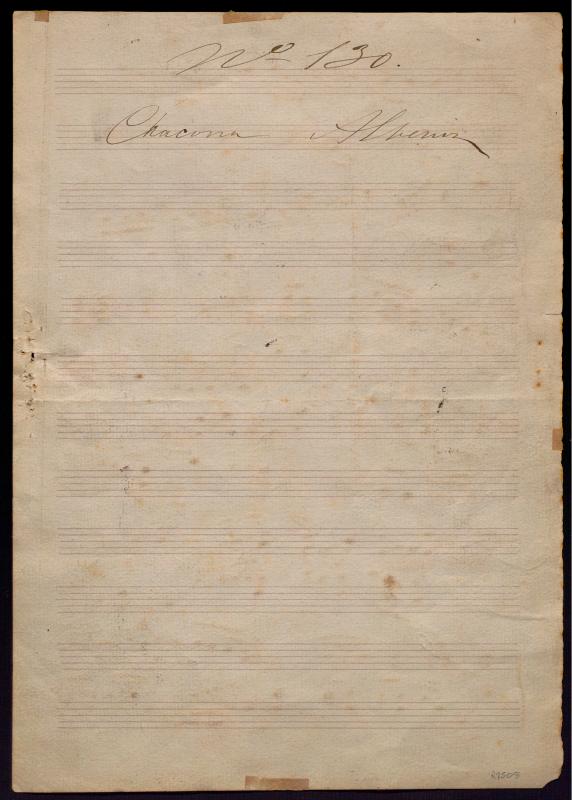 Nº 130.
Chacona Albeniz